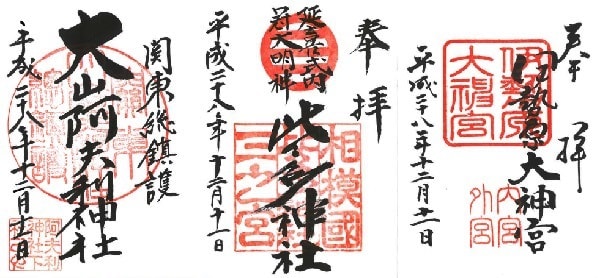 奉拝
伊勢原大神宮
伊勢原
大神宮
内宮
外宮
平成二十八年十二月十一日
奉拝
延喜式内
冠大明神
比々多神社
相模國
三之宮
平成二十八年十二月十一日
関東総鎮護
大山阿夫利神社
阿夫利
神社下
平成二十八年十二月十一日